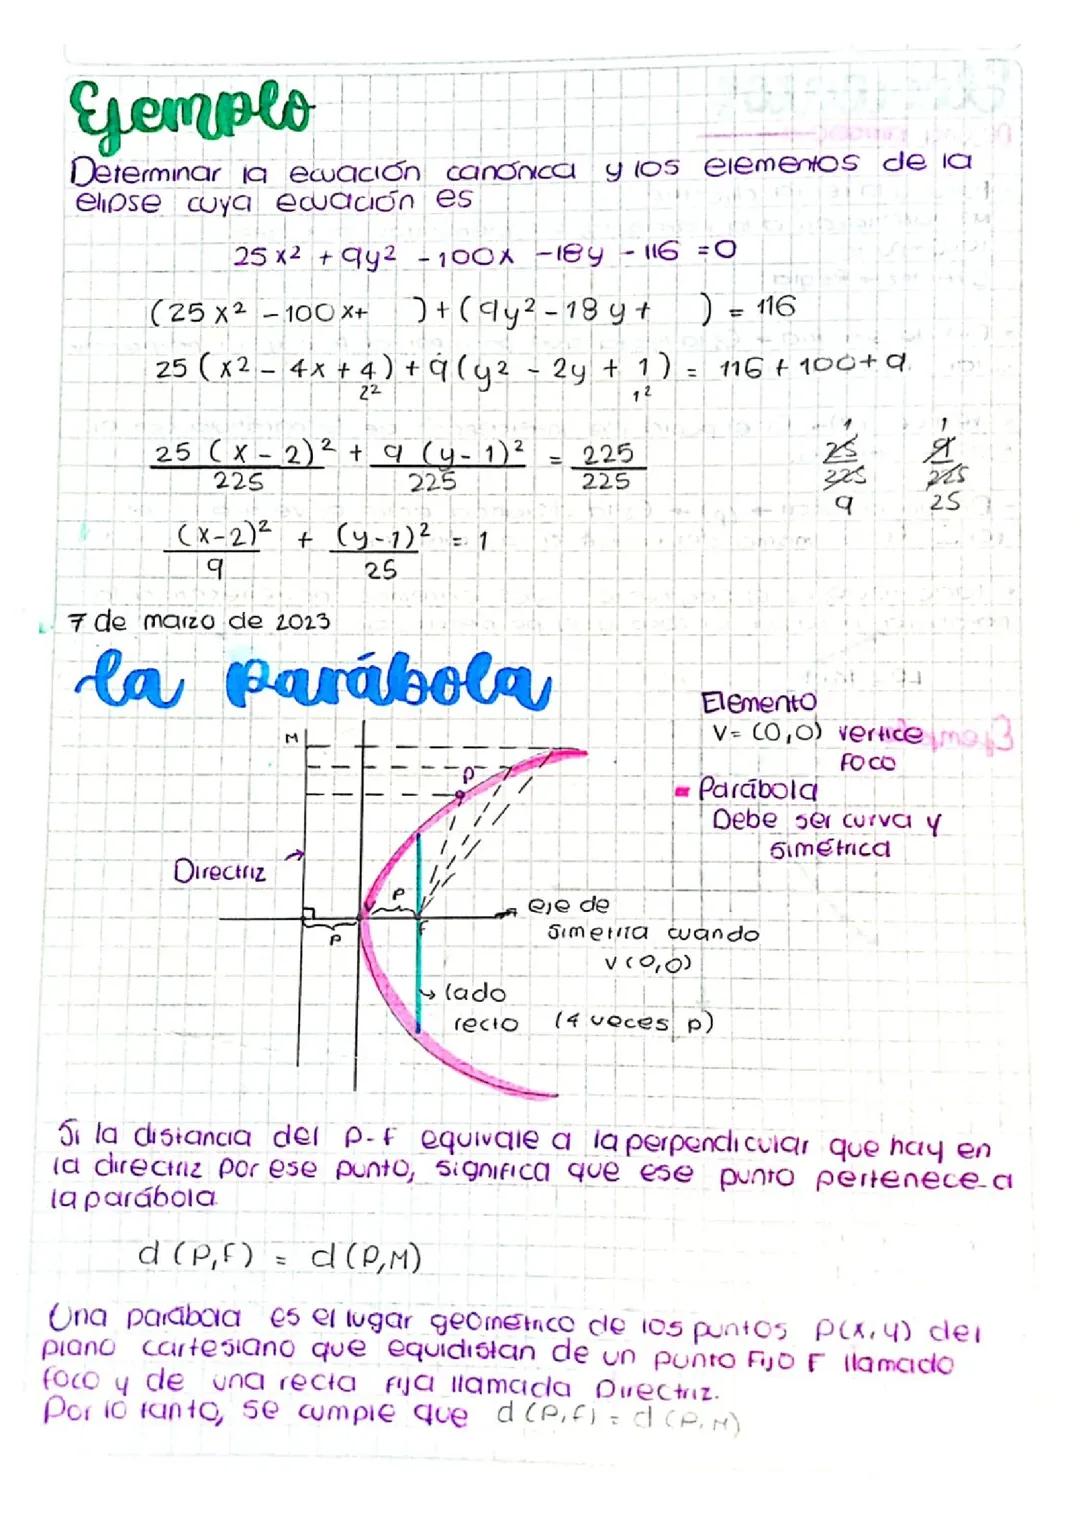 Ejemplo
Determinar la ecuación canónica y los elementos de la
elipse cuya ecuación es
25x² + 9y² - 100x - 18y - 116 = 0
(25x² - 100x+ ) + (9y² - 18y + ) = 116
25 (x² - 4x + 4) + 9 (y² - 2y + 1) = 116 + 100 + 9
2² 1²
25 (x - 2)² + 9 (y - 1)² = 225
225 225 225
1 1
25 9
225 225
9 25
(x-2)² + (y-1)² = 1
9 25
7 de marzo de 2023
la parábola
Elemento
V = (0,0) vertice
foco
Parábola
Debe ser curva y
simétrica
M
P
Directriz
P
V
F
P
eje de
simetria cuando
v (0,0)
lado
recto (4 veces p)
Si la distancia del p-f equivale a la perpendicular que hay en
la directriz por ese punto, significa que ese punto pertenece a
la parábola
d (P,F) = d (P,M)
Una parábola es el lugar geométrico de los puntos P(x,y) del
plano cartesiano que equidistan de un punto Fijo F llamado
foco y de una recta fija llamada Directriz.
Por lo tanto, se cumple que d (P,F) = d (P,M)